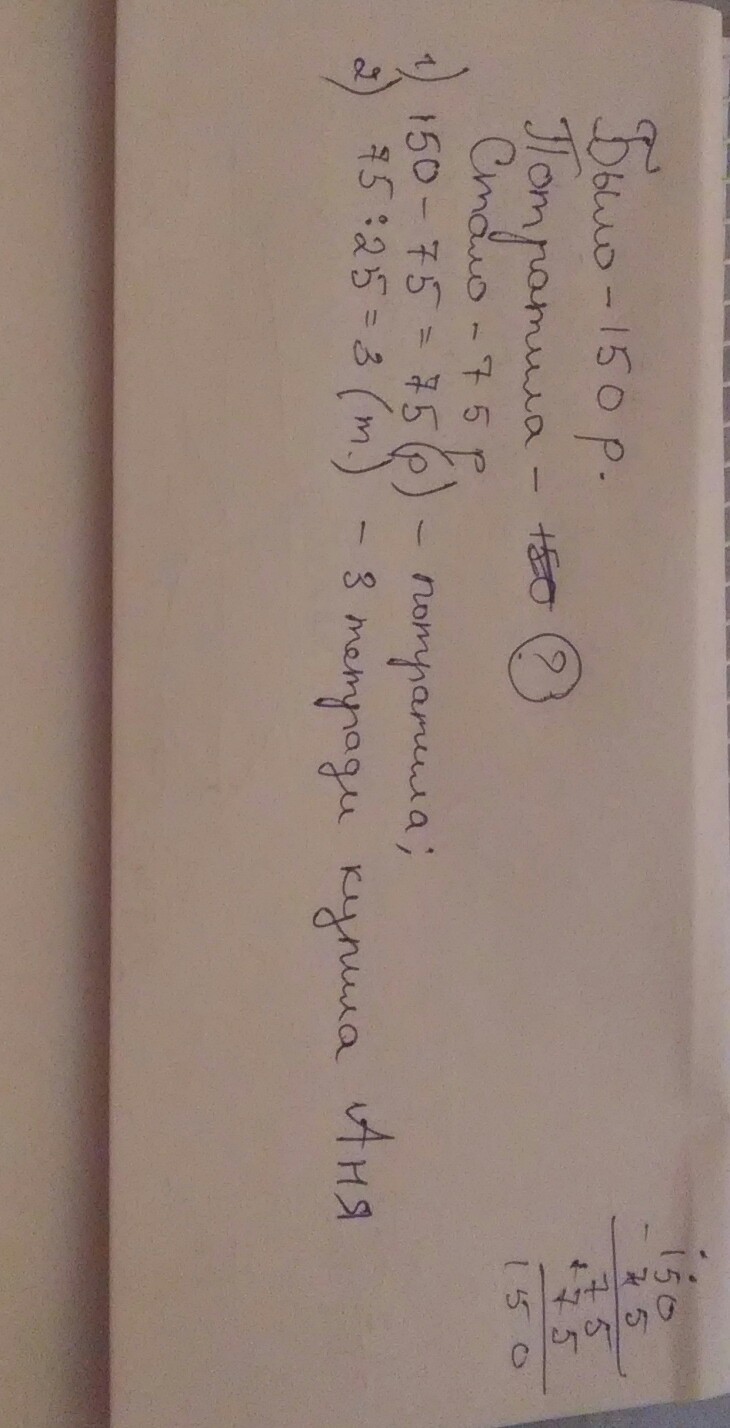 Было - 150 р.
Потратила - 150 ?
Стало - 75 р
1) 150 - 75 = 75 (р) - потратила;
2) 75 : 25 = 3 (т.) - 3 тетради купила Аня
150
- 75
75
+ 75
150